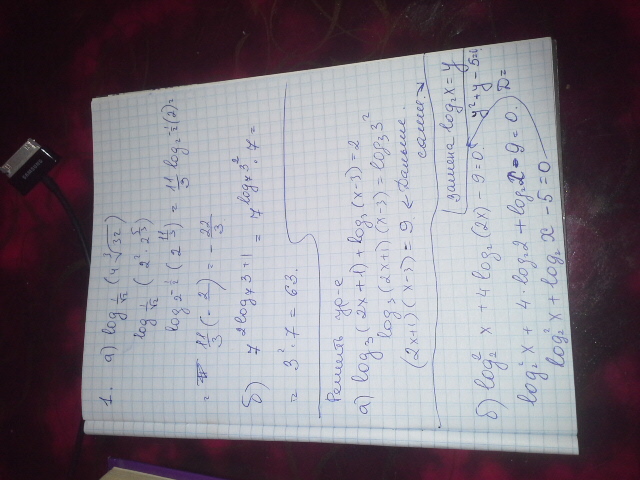 1. а) log 1/√2 (4 ∛32)
log 1/√2 (2² · 2^(5/3))
log 2^(-1/2) (2^(11/3)) = 11/3 log 2^(-1/2) (2) =
= 11/3 (-2) = -22/3.
б) 7^(2log₇3+1) = 7^(log₇3²) · 7 =
= 3² · 7 = 63.
Решить ур-е
а) log₃(2x+1) + log₃(x-3) = 2
log₃(2x+1)(x-3) = log₃3²
(2x+1)(x-3) = 9. ← Дальше сами.
б) log₂² x + 4 log₂(2x) - 9 = 0
замена log₂x = y
log₂²x + 4 · log₂2 + log₂x - 9 = 0.
y² + y - 5 = 0
log₂²x + log₂x - 5 = 0
D =